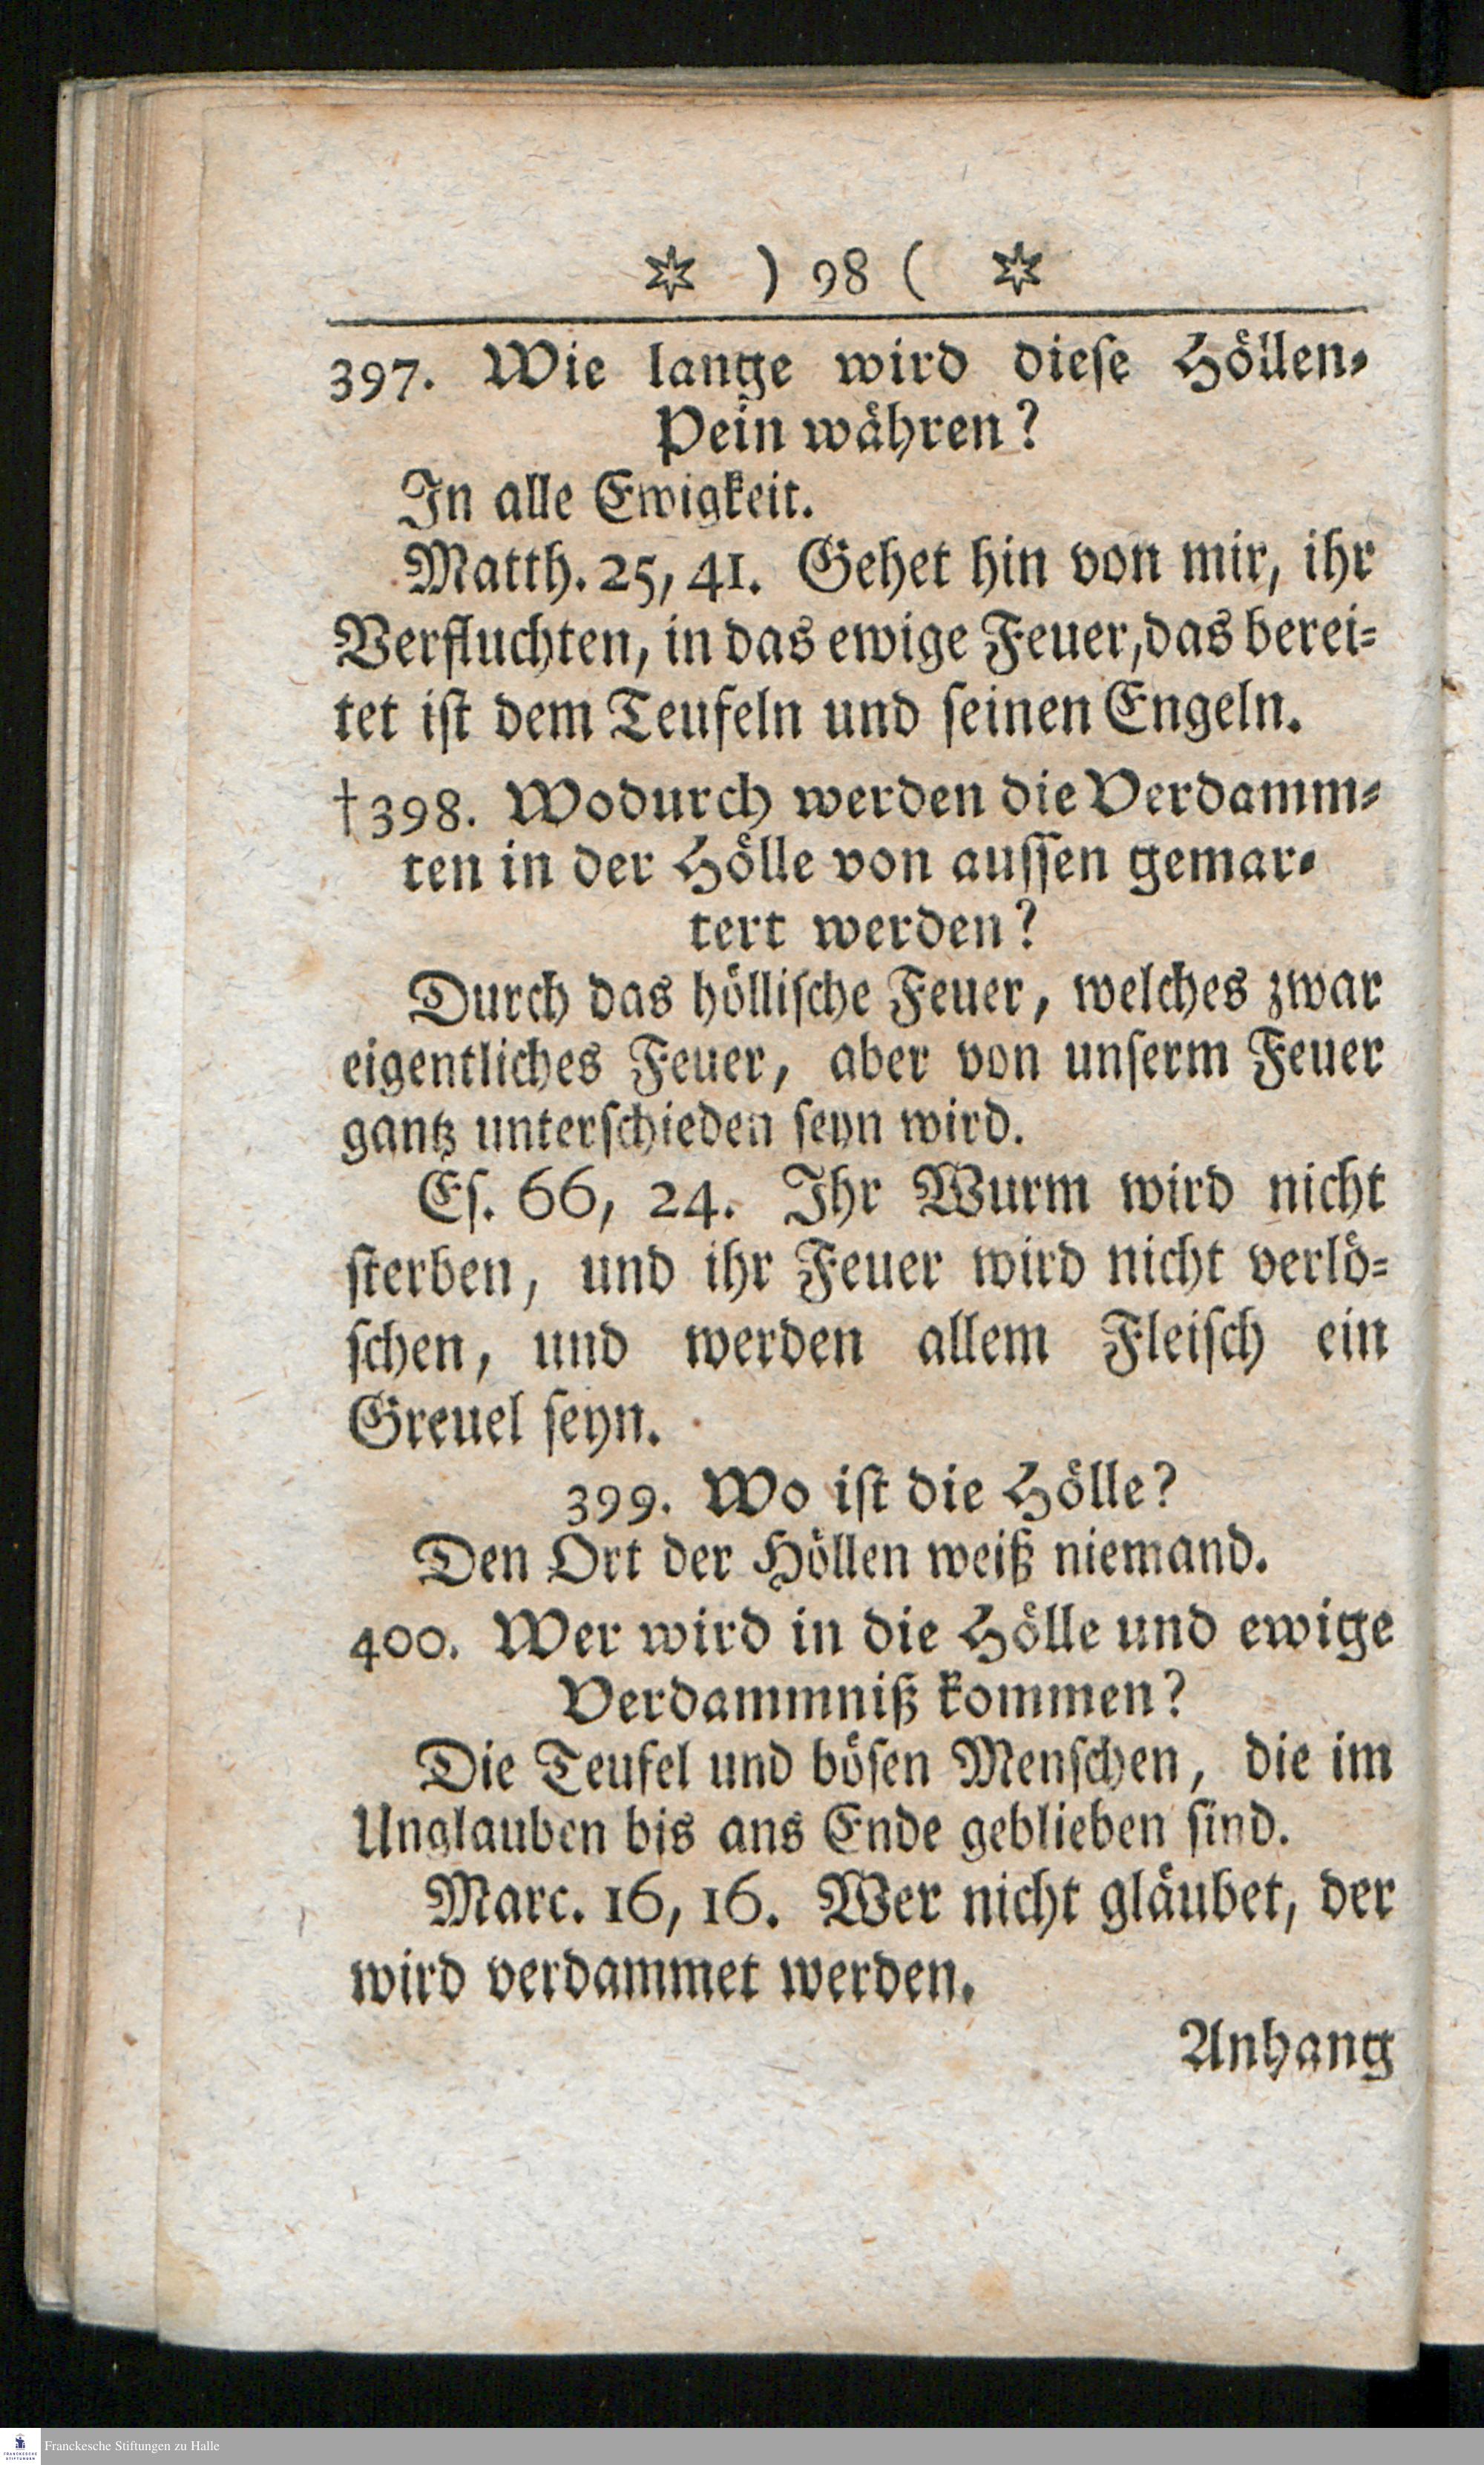 ✡ ) 98 ( ✡
397. Wie lange wird dieſe Höllen-
Pein währen?
In alle Ewigkeit.
Matth. 25, 41. Gehet hin von mir, ihr
Verfluchten, in das ewige Feuer, das berei-
tet iſt dem Teufeln und ſeinen Engeln.
†398. Wodurch werden die Verdamm-
ten in der Hölle von auſſen gemar-
tert werden?
Durch das hölliſche Feuer, welches zwar
eigentliches Feuer, aber von unſerm Feuer
gantz unterſchieden ſeyn wird.
Eſ. 66, 24. Ihr Wurm wird nicht
ſterben, und ihr Feuer wird nicht verlö-
ſchen, und werden allem Fleiſch ein
Greuel ſeyn.
399. Wo iſt die Hölle?
Den Ort der Höllen weiß niemand.
400. Wer wird in die Hölle und ewige
Verdammniß kommen?
Die Teufel und böſen Menſchen, die im
Unglauben bis ans Ende geblieben ſind.
Marc. 16, 16. Wer nicht gläubet, der
wird verdammet werden.
Anhang
FRANCKESCHE
STIFTUNGEN
Franckesche Stiftungen zu Halle